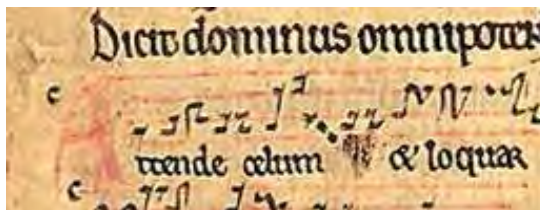 Dicit dominus omnipoten
c
Attende celum & loquar
c